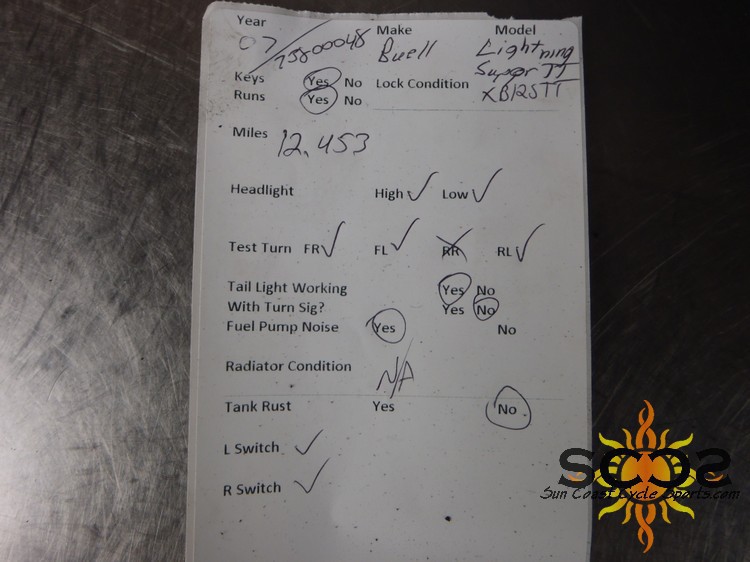 Year Make Model
07/75800048 Buell Lightning
Super TT
Keys Yes No Lock Condition XB12STT
Runs Yes No
Miles 12,453
Headlight High ✓ Low ✓
Test Turn FR ✓ FL ✓ RR RL ✓
Tail Light Working Yes No
With Turn Sig? Yes No
Fuel Pump Noise Yes No
Radiator Condition N/A
Tank Rust Yes No
L Switch ✓
R Switch ✓
SCCS
Sun Coast Cycle Sports.com